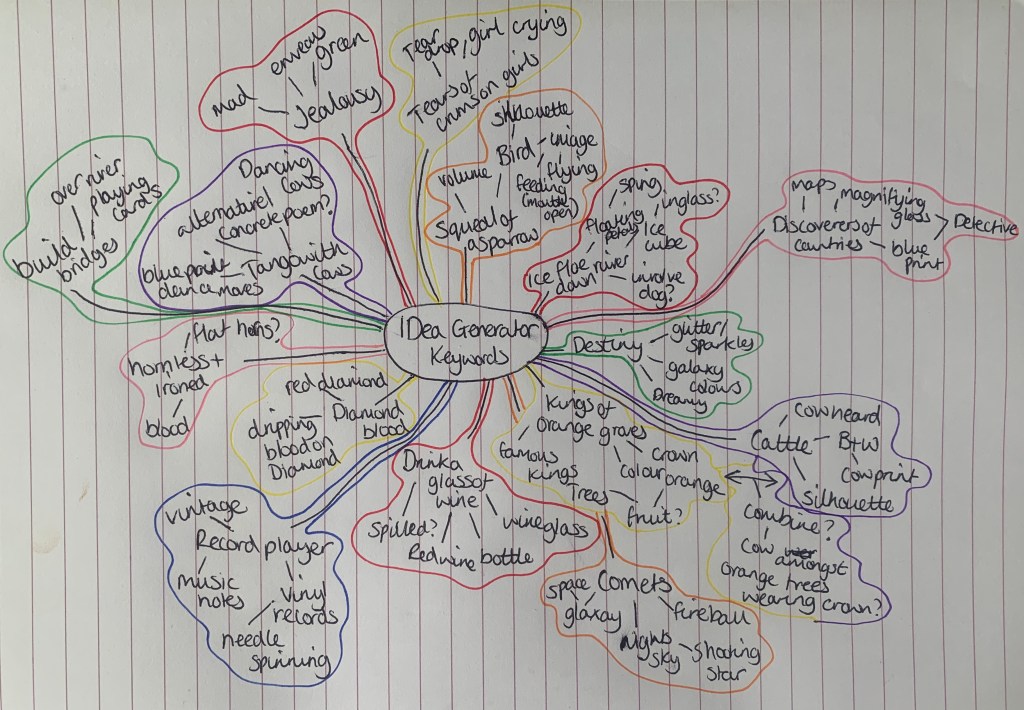 IDea Generator
Keywords
mad
envious
green
Jealousy
Tear
drop, girl crying
Tears of
crimson girls
silhouette
Bird
image
flying
feeding
(mouth
open)
volume
Squeal of
a sparrow
sping
in glass?
floating
petals
Ice
cube
Ice floe river
down
involve
dog?
maps
magnifying
glass
Detective
Discoverers of
countries
blue
print
Destiny
glitter/
sparkles
galaxy
colours
Dreamy
Cattle
Cow heard
B+W
Cowprint
silhouette
Combine?
Cow amongst
orange trees
wearing crown?
Kings of
orange groves
famous
kings
crown
colour orange
Trees
fruit?
Comets
space
glaxay
fireball
nights
sky
shooting
star
Drink a
glass of
wine
Spilled?
Red wine
bottle
wine glass
vintage
Record player
music
notes
vinyl
records
needle
spinning
red diamond
Diamond
blood
dripping
blood on
Diamond
flat horns?
hornless +
ironed
blood
Dancing
cows
alternaturel
Concrete poem?
blue paint
dance moves
Tango with
cows
over river
playing
cards
build
bridges